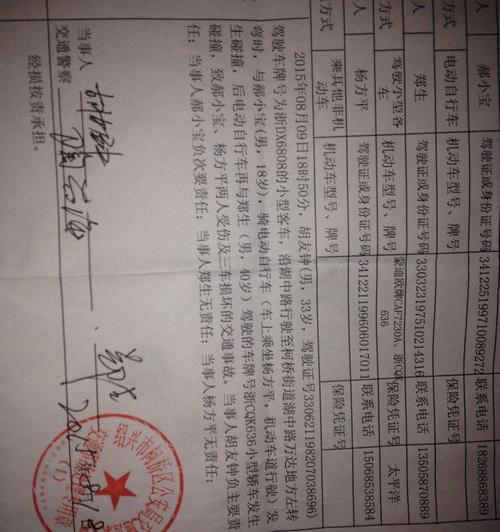 郝小宝 驾驶证或身份证号码 341225199710089272 联系电话 18268868389
方式 电动自行车 机动车型号、牌号 保险凭证号
人 郑生 驾驶证或身份证号码 330323197510214316 联系电话 13505870889
方式 驾驶小型客车 机动车型号、牌号 蒙迪欧牌CAF7230A、浙CQK636 保险凭证号 太平洋
人 杨方平 驾驶证或身份证号码 341221199606017011 联系电话 15068538584
方式 乘其他非机动车 机动车型号、牌号 保险凭证号
2015年08月09日18时50分，胡友钟(男，33岁，驾驶证号330621198207038696)
驾驶车牌号为浙DX6808的小型客车，沿湖中路行驶至柯桥街道湖中路万达地方左转
弯时，与郝小宝(男，18岁)，骑电动自行车（车上乘坐杨方平，机动车道行驶）发
生碰撞，后电动自行车再与郑生（男，40岁）驾驶的车牌号浙CQK636小型轿车发生
碰撞，致郝小宝、杨方平两人受伤及三车损坏的交通事故。当事人胡友钟负主要责
任；当事人郝小宝负次要责任；当事人郑生无责任；当事人杨方平无责任。
当事人
交通警察
经损按责承担。